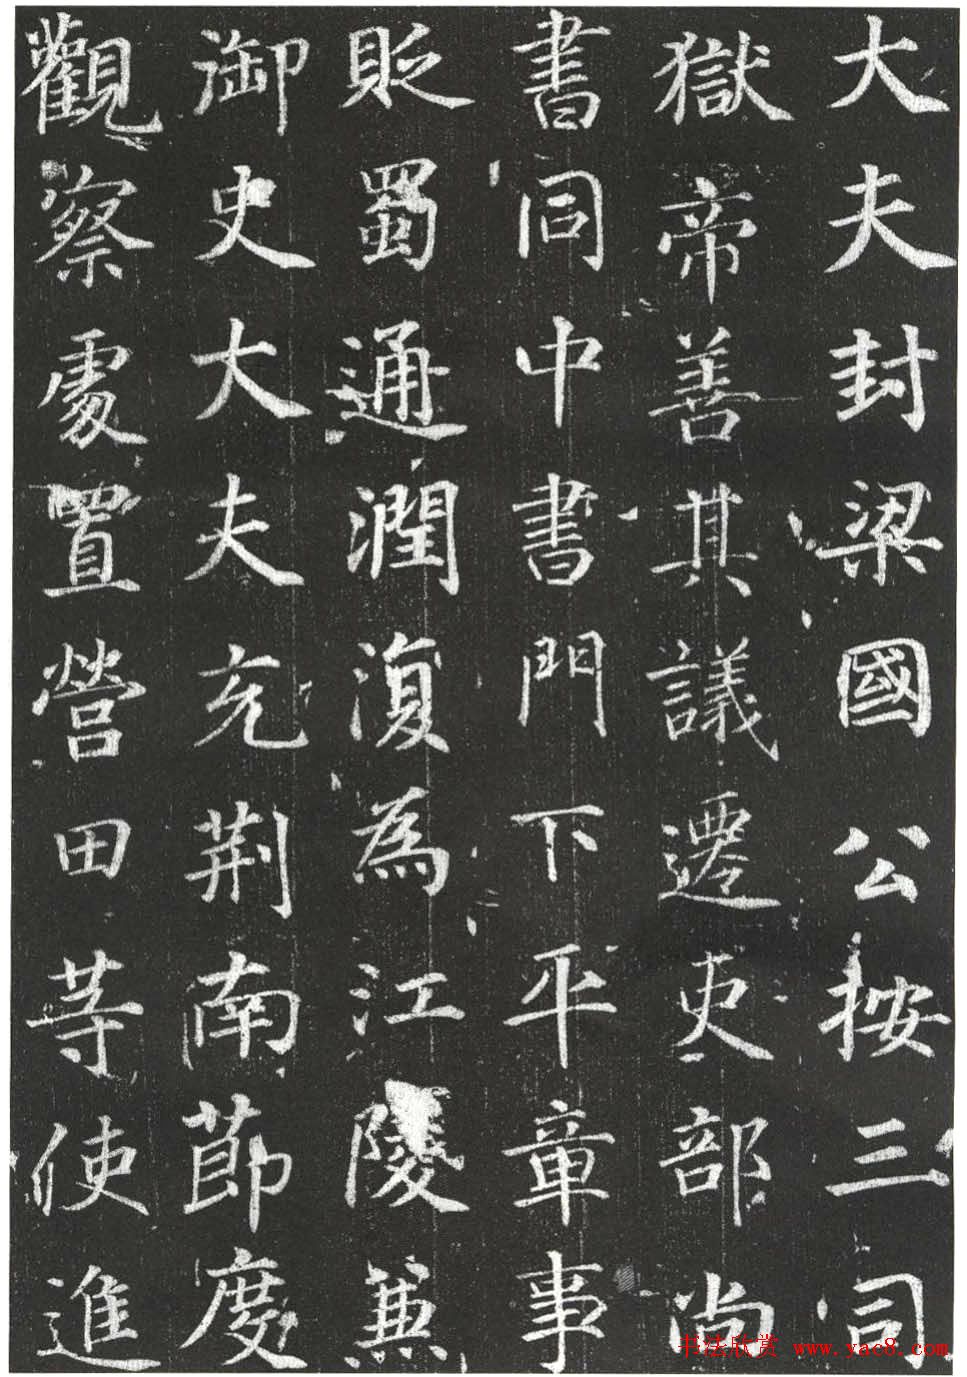 大夫封梁國公按三司
獄帝善其議遷吏部尚
書同中書門下平章事
貶蜀通潤復為江陵兼
御史大夫充荆南節度
觀察處置營田等使進
书法欣赏 www.yac8.com